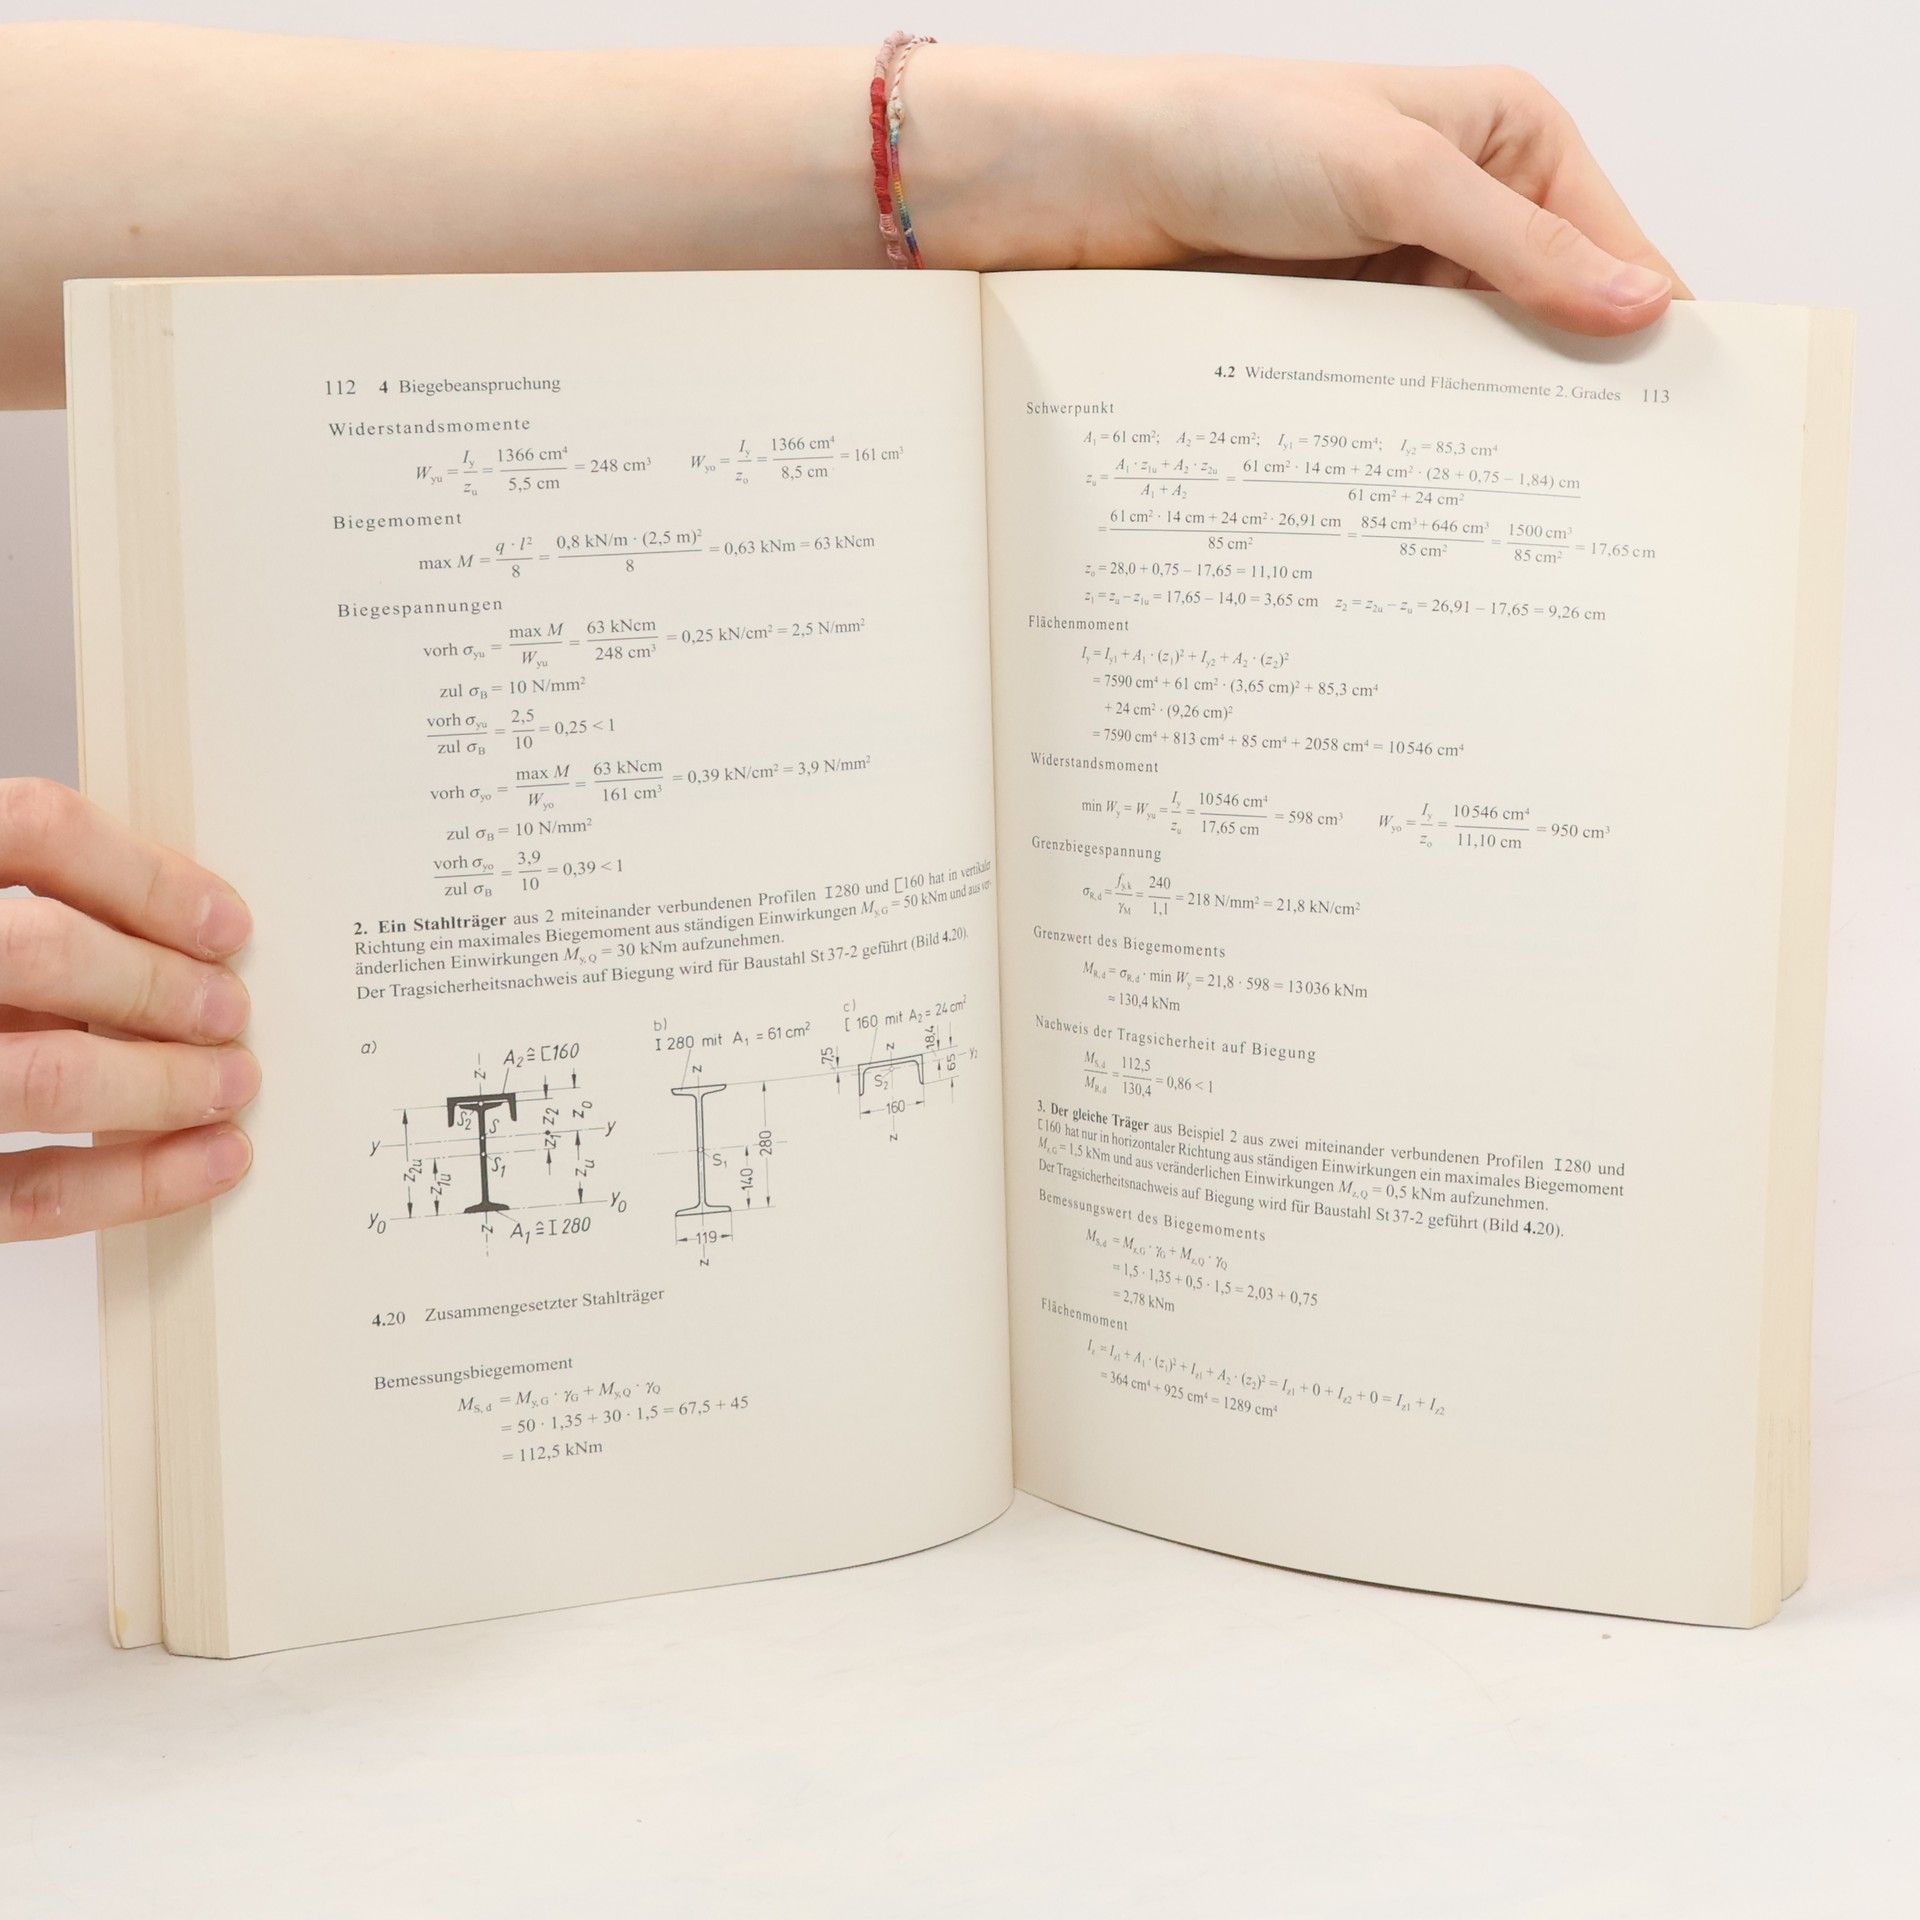 112 4 Biegebeanspruchung
Widerstandsmomente
W_yu = I_y / z_u = 1366 cm⁴ / 5,5 cm = 248 cm³ W_yo = I_y / z_o = 1366 cm⁴ / 8,5 cm = 161 cm³
Biegemoment
max M = q · l² / 8 = 0,8 kN/m · (2,5 m)² / 8 = 0,63 kNm = 63 kNcm
Biegespannungen
vorh σ_yu = max M / W_yu = 63 kNcm / 248 cm³ = 0,25 kN/cm² = 2,5 N/mm²
zul σ_B = 10 N/mm²
vorh σ_yu / zul σ_B = 2,5 / 10 = 0,25 < 1
vorh σ_yo = max M / W_yo = 63 kNcm / 161 cm³ = 0,39 kN/cm² = 3,9 N/mm²
zul σ_B = 10 N/mm²
vorh σ_yo / zul σ_B = 3,9 / 10 = 0,39 < 1
2. Ein Stahlträger aus 2 miteinander verbundenen Profilen I280 und [160 hat in vertikaler
Richtung ein maximales Biegemoment aus ständigen Einwirkungen M_y,G = 50 kNm und aus ver-
änderlichen Einwirkungen M_y,Q = 30 kNm aufzunehmen.
Der Tragsicherheitsnachweis auf Biegung wird für Baustahl St 37-2 geführt (Bild 4.20).
a)
A₂ ≙ [160
z
S₂ S
S₁
y y
z₂ z₀
z₁
z_2u z_1u z_u
y₀ y₀
z
A₁ ≙ I 280
b)
I 280 mit A₁ = 61 cm²
z
S₁
140
280
119
z
c)
[ 160 mit A₂ = 24 cm²
7,5
z
18,4
65
y₂
S₂
160
z
4.20 Zusammengesetzter Stahlträger
Bemessungsbiegemoment
M_S,d = M_y,G · γ_G + M_y,Q · γ_Q
= 50 · 1,35 + 30 · 1,5 = 67,5 + 45
= 112,5 kNm
4.2 Widerstandsmomente und Flächenmomente 2. Grades 113
Schwerpunkt
A₁ = 61 cm²; A₂ = 24 cm²; I_y1 = 7590 cm⁴; I_y2 = 85,3 cm⁴
z_u = A₁ · z_1u + A₂ · z_2u / A₁ + A₂ = 61 cm² · 14 cm + 24 cm² · (28 + 0,75 − 1,84) cm / 61 cm² + 24 cm²
= 61 cm² · 14 cm + 24 cm² · 26,91 cm / 85 cm² = 854 cm³ + 646 cm³ / 85 cm² = 1500 cm³ / 85 cm² = 17,65 cm
z_o = 28,0 + 0,75 − 17,65 = 11,10 cm
z₁ = z_u − z_1u = 17,65 − 14,0 = 3,65 cm z₂ = z_2u − z_u = 26,91 − 17,65 = 9,26 cm
Flächenmoment
I_y = I_y1 + A₁ · (z₁)² + I_y2 + A₂ · (z₂)²
= 7590 cm⁴ + 61 cm² · (3,65 cm)² + 85,3 cm⁴
+ 24 cm² · (9,26 cm)²
= 7590 cm⁴ + 813 cm⁴ + 85 cm⁴ + 2058 cm⁴ = 10546 cm⁴
Widerstandsmoment
min W_y = W_yu = I_y / z_u = 10546 cm⁴ / 17,65 cm = 598 cm³ W_yo = I_y / z_o = 10546 cm⁴ / 11,10 cm = 950 cm³
Grenzbiegespannung
σ_R,d = f_y,k / γ_M = 240 / 1,1 = 218 N/mm² = 21,8 kN/cm²
Grenzwert des Biegemoments
M_R,d = σ_R,d · min W_y = 21,8 · 598 = 13036 kNm
= 130,4 kNm
Nachweis der Tragsicherheit auf Biegung
M_S,d / M_R,d = 112,5 / 130,4 = 0,86 < 1
3. Der gleiche Träger aus Beispiel 2 aus zwei miteinander verbundenen Profilen I280 und
[160 hat nur in horizontaler Richtung aus ständigen Einwirkungen ein maximales Biegemoment
M_z,G = 1,5 kNm und aus veränderlichen Einwirkungen M_z,Q = 0,5 kNm aufzunehmen.
Der Tragsicherheitsnachweis auf Biegung wird für Baustahl St 37-2 geführt (Bild 4.20).
Bemessungswert des Biegemoments
M_S,d = M_z,G · γ_G + M_z,Q · γ_Q
= 1,5 · 1,35 + 0,5 · 1,5 = 2,03 + 0,75
= 2,78 kNm
Flächenmoment
I_z = I_z1 + A₁ · (z₁)² + I_z1 + A₂ · (z₂)² = I_z1 + 0 + I_z2 + 0 = I_z1 + I_z2
= 364 cm⁴ + 925 cm⁴ = 1289 cm⁴